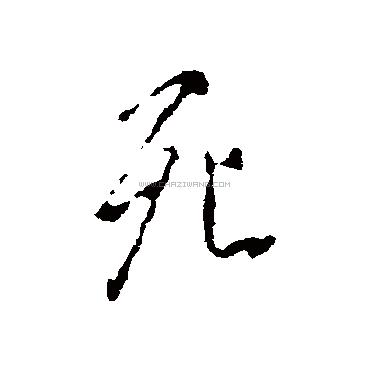 死
WWW.CHAZIWANG.COM